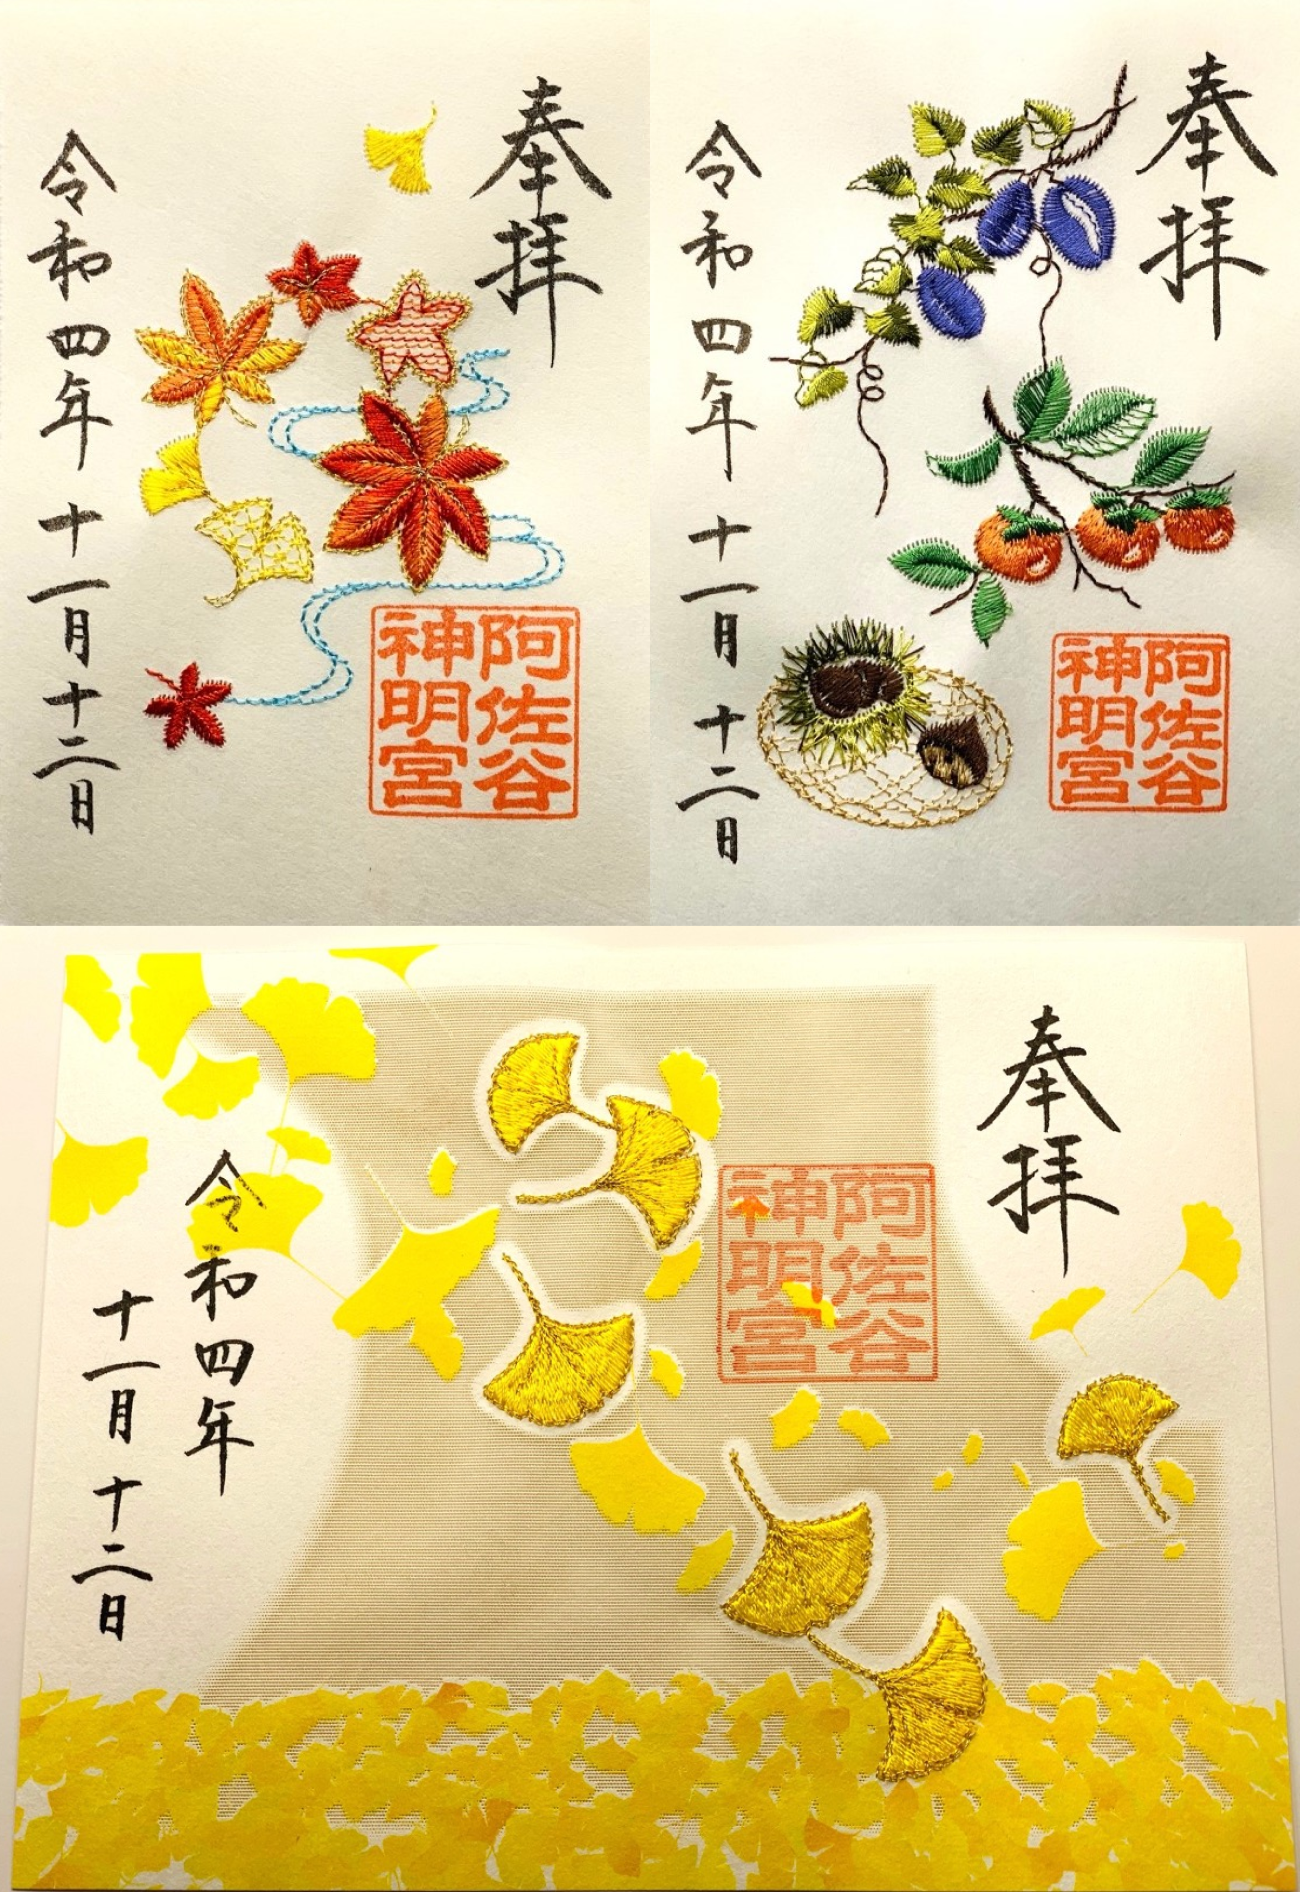 奉拝
阿佐谷
神明宮
令和四年十一月十二日
奉拝
阿佐谷
神明宮
令和四年十一月十二日
奉拝
阿佐谷
神明宮
令和四年
十一月十二日